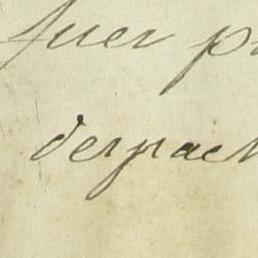 fuer p
despach